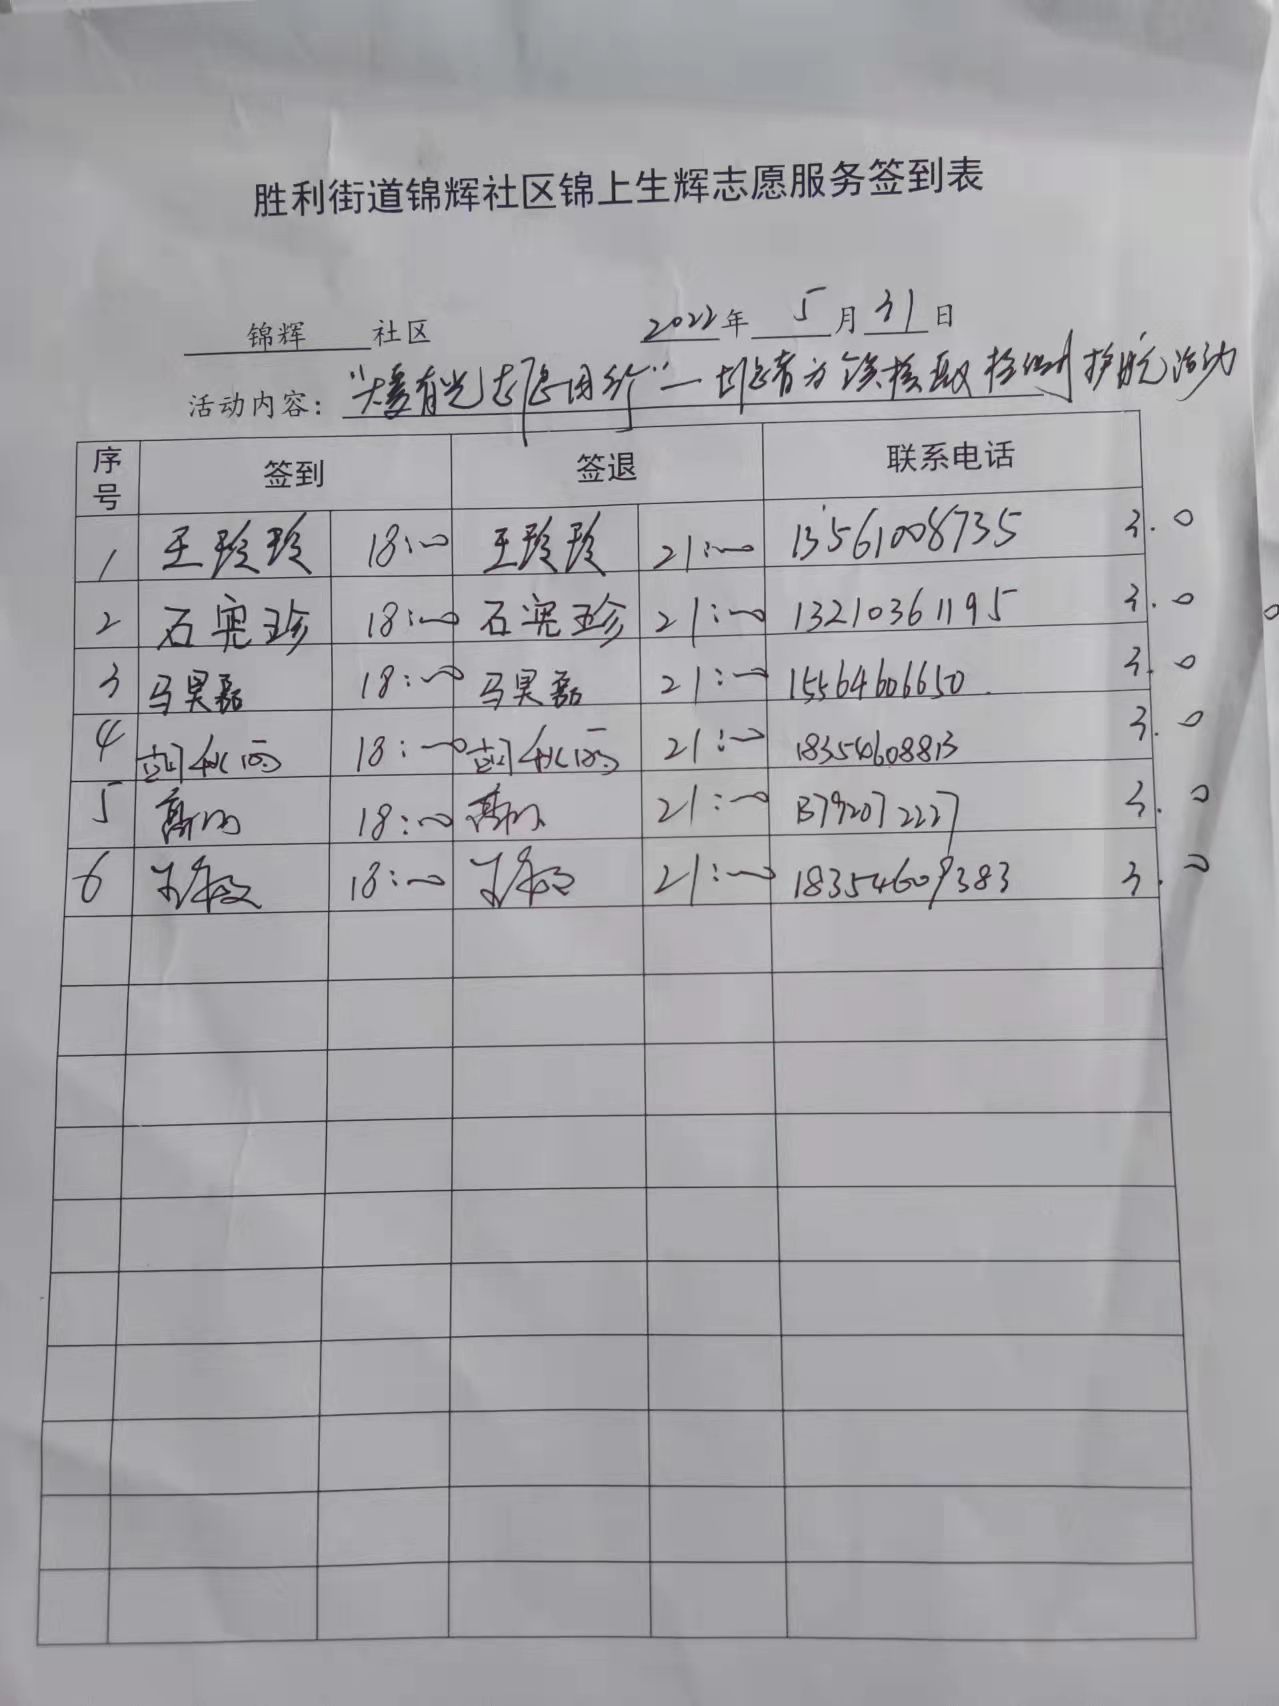 胜利街道锦辉社区锦上生辉志愿服务签到表
锦辉 社区 2022年 5 月 31 日
活动内容：有光 志愿同行”— 志愿者为全员核酸检测护航活动
序号 签到 签退 联系电话
1 王玲玲 18:00 王玲玲 21:00 13561008735 3.0
2 石宪珍 18:00 石宪珍 21:00 13210361195 3.0
3 马昊磊 18:00 马昊磊 21:00 15564606650 3.0
4 18:00 21:00 18354608813 3.0
5 18:00 21:00 13792072227 3.0
6 18:00 21:00 18354609383 3.0